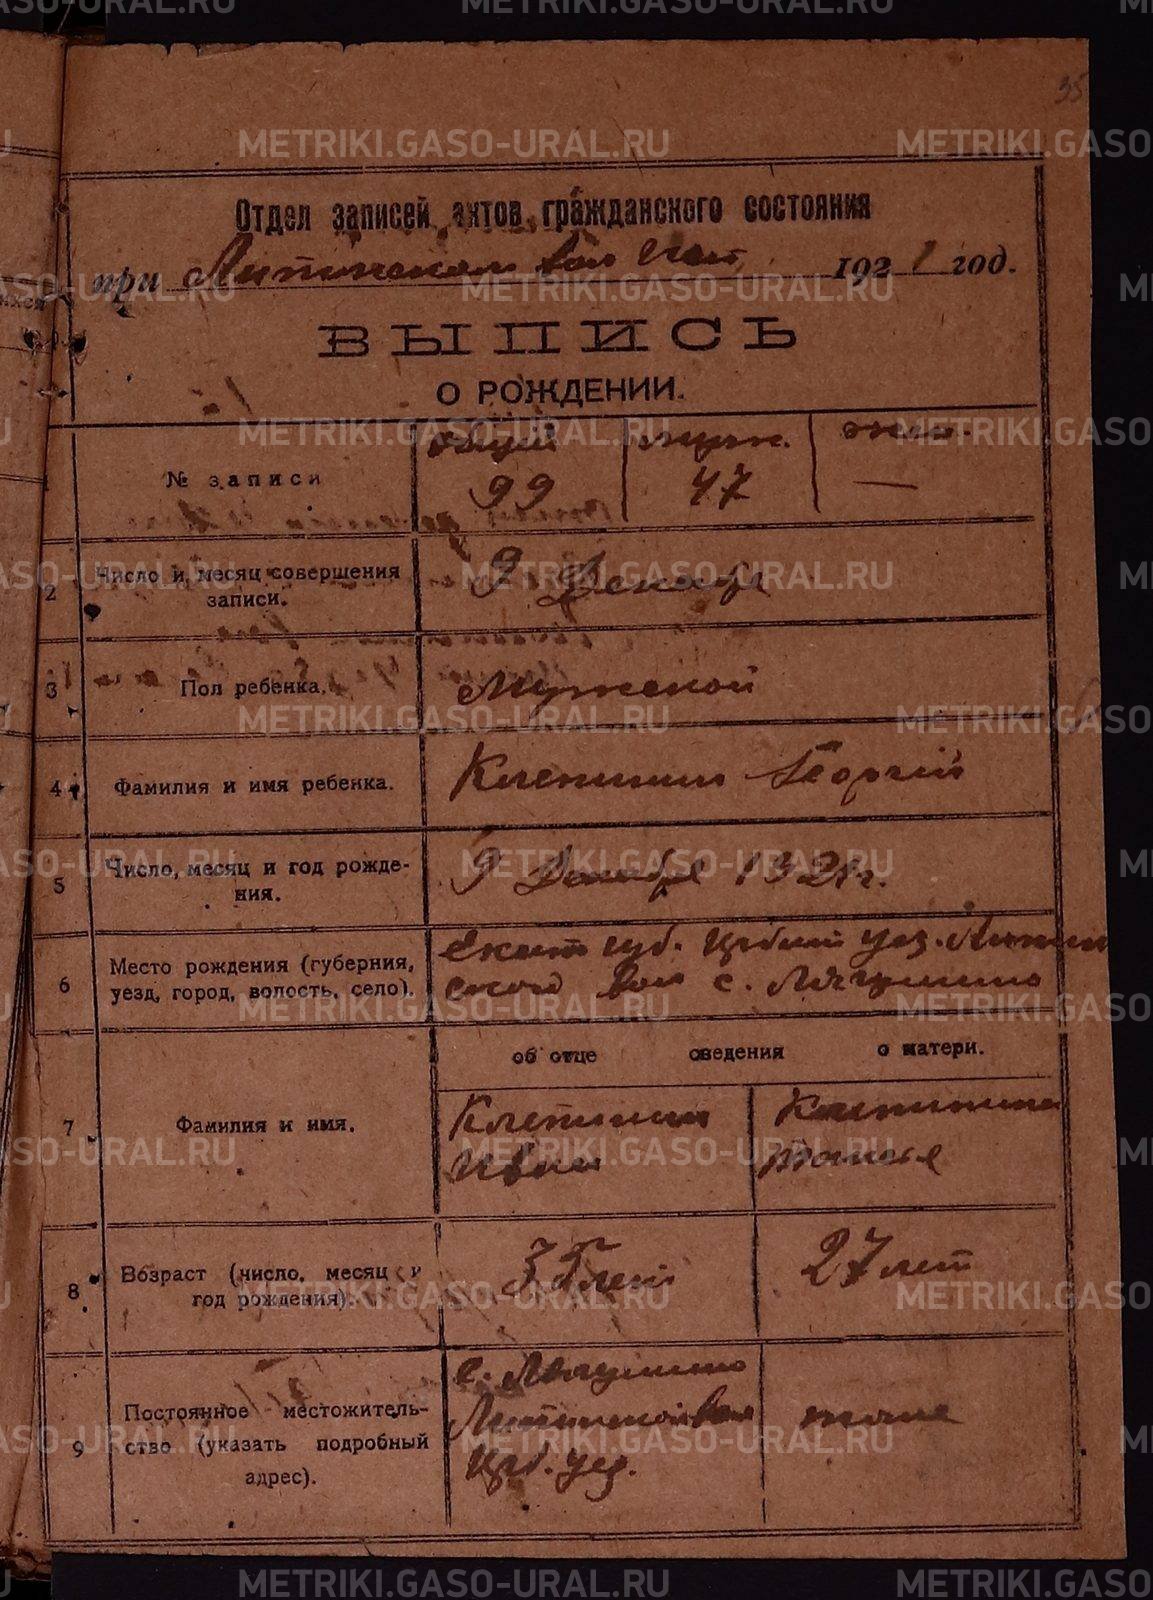 35
METRIKI.GASO-URAL.RU
Отдел записей актов гражданского состояния
при вол 1921 год.
ВЫПИСЬ
О РОЖДЕНИИ.
№ записи общий 99 мужк. 47 женс. —
2 Число и месяц совершения записи. 9 Декабря
3 Пол ребенка. Мужской
4 Фамилия и имя ребенка. Клепинин Георгий
5 Число, месяц и год рожде-
ния. 9 Декабря 1921 г.
6 Место рождения (губерния, Екат губ. Ирбит уез.
уезд, город, волость, село). ского вол с. Лягушино
об отце сведения о матери.
7 Фамилия и имя. Клепинин Клепинина
Иван
8 Возраст (число, месяц и год рождения). 35 лет 27 лет
9 Постоянное местожитель-
ство (указать подробный
адрес). с. Лягушино
вол
Ирб. уез.